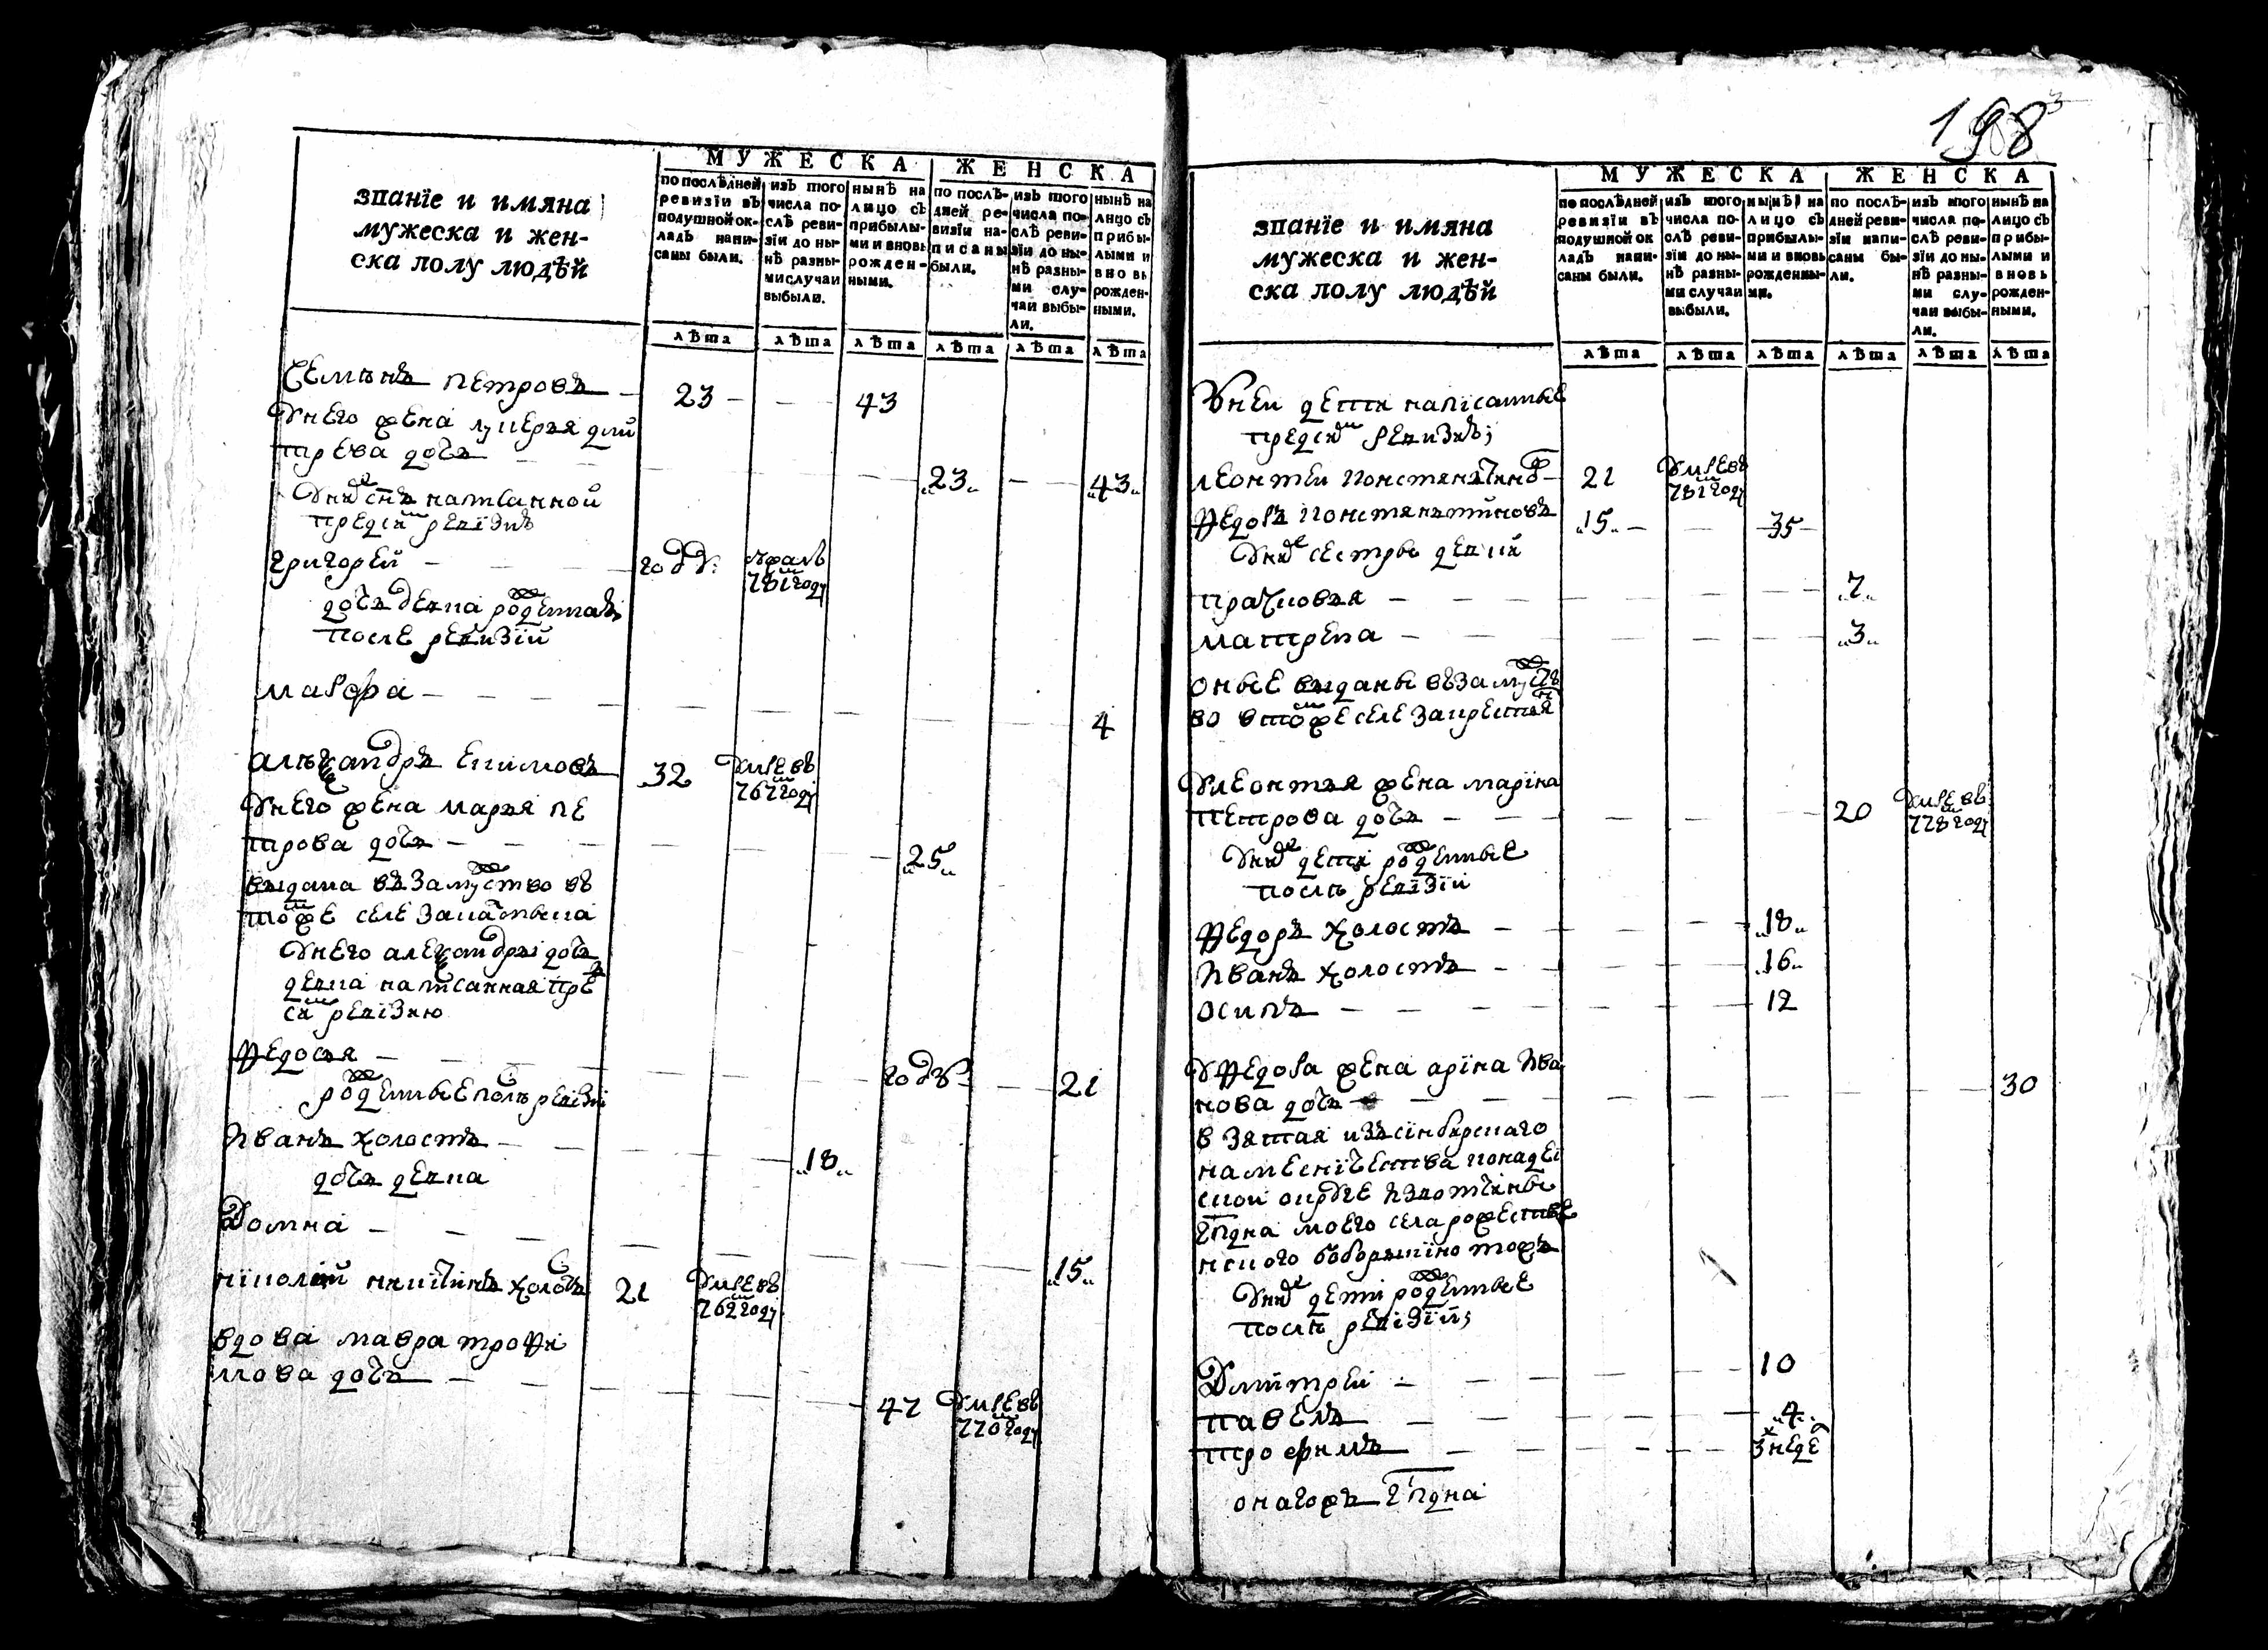 МУЖЕСКА ЖЕНСКА
званїе и имяна
мужеска и жен-
ска полу людѣй
по послѣдней
ревизїи въ
подушной ок-
ладъ напи-
саны были.
изъ того
числа по-
слѣ реви-
зїи до ны-
нѣ разны-
ми случаи
выбыли.
нынѣ на
лицо съ
прибылы-
ми и вновь
рожден-
ными.
по послѣ-
дней ре-
визїи на-
писаны
были.
изъ того
числа по-
слѣ реви-
зїи до ны-
нѣ разны-
ми слу-
чаи выбы-
ли.
нынѣ на
лицо съ
прибы-
лыми и
вновь
рожден-
ными.
лѣта лѣта лѣта лѣта лѣта лѣта
Семѣнъ петровъ 23 43
Унего жена лукерья дми
трева дочь 23 43
Унихъ снъ написанной
предсию ревїзиѣ
григорей году умръ
781 году
дочь девка рожденная
после ревизїи
мавра 4
алеѯандръ екимовъ 32 Умревъ
767 году
Унего жена марья пе
трова дочь 25
выдана въ замуство въ
томже селе
Унего алеѯандра дочь
девка написанная пре
сию ревїзию
Федосья году 21
рожденные послѣ ревїзїи
Иванъ холостъ 18
дочь девка
Домна 15
никитинъ холостъ 21 Умревъ
762 году
вдова мавра трофи
мова дочь 47 Умревъ
770 году
198
МУЖЕСКА ЖЕНСКА
званїе и имяна
мужеска и жен-
ска полу людѣй
по послѣдней
ревизїи въ
подушной ок
ладъ напи-
саны были.
изъ того
числа по-
слѣ реви-
зїи до ны-
нѣ разны-
ми случаи
выбыли.
нынѣ на
лицо съ
прибылы-
ми и вновь
рожденны-
ми.
по послѣ-
дней реви-
зїи напи-
саны бы-
ли.
изъ того
числа по-
слѣ реви-
зїи до ны-
нѣ разны-
ми слу-
чаи выбы-
ли.
нынѣ на
лицо съ
прибы-
лыми и
вновь
рожден-
ными.
лѣта лѣта лѣта лѣта лѣта лѣта
Унеи дети написанные
предсию ревизиѣ;
леонтеи констянтиновъ 21 Умревъ
781 году
Федоръ констянтиновъ 15 35
Унихъ сестры девки
прасковья 7
матрена 3
оные выданы въ замуст
во в томже селе закрестьянъ
Улеонтья жена марїна
петрова дочь 20 Умревъ
778 году
Унихъ дети рожденные
послѣ ревїзїи
Федоръ холостъ 18
Иванъ холостъ 16
осипъ 12
УФедора жена арїна ива
нова дочь 30
взятая изъ сїнбирскаго
намеснїчества
скои округе изъвотчины
гпдна моего села рожестве
нского тожъ
Унихъ дети рожденные
послѣ ревїзїи;
Дмитреи 10
павелъ 4
трофимъ 3 неде
онагожъ гпдна